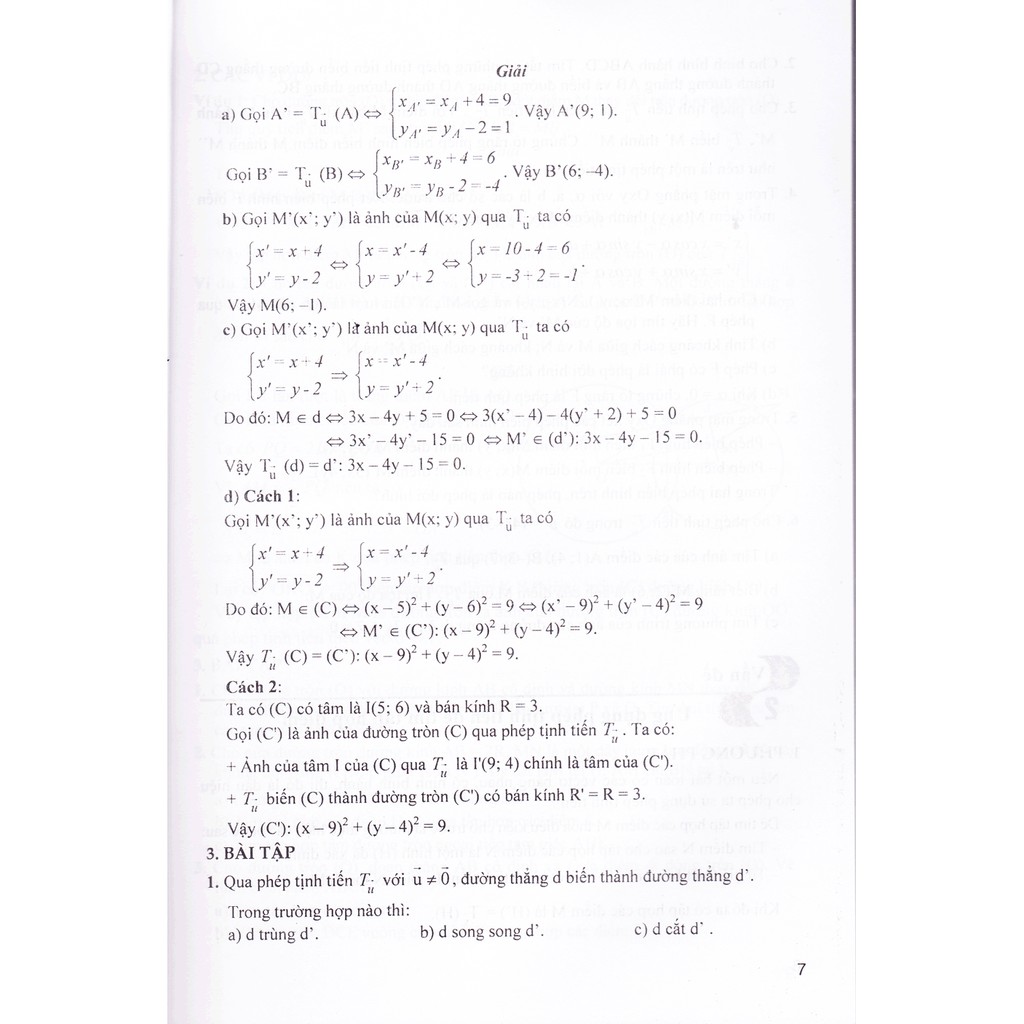 Giải
a) Gọi A’ = T_u⃗ (A) ⇔ { x_A' = x_A + 4 = 9
y_A' = y_A − 2 = 1 . Vậy A’(9; 1).
Gọi B’ = T_u⃗ (B) ⇔ { x_B' = x_B + 4 = 6
y_B' = y_B - 2 = -4 . Vậy B’(6; –4).
b) Gọi M’(x’; y’) là ảnh của M(x; y) qua T_u⃗ ta có
{ x' = x + 4 ⇔ { x = x' - 4 ⇔ { x = 10 - 4 = 6
y' = y - 2 y = y' + 2 y = -3 + 2 = -1 .
Vậy M(6; –1).
c) Gọi M’(x’; y’) là ảnh của M(x; y) qua T_u⃗ ta có
{ x' = x + 4 ⇒ { x = x' - 4
y' = y - 2 y = y' + 2 .
Do đó: M ∈ d ⇔ 3x – 4y + 5 = 0 ⇔ 3(x’ – 4) – 4(y’ + 2) + 5 = 0
⇔ 3x’ – 4y’ – 15 = 0 ⇔ M’ ∈ (d’): 3x – 4y – 15 = 0.
Vậy T_u⃗ (d) = d’: 3x – 4y – 15 = 0.
d) Cách 1:
Gọi M’(x’; y’) là ảnh của M(x; y) qua T_u⃗ ta có
{ x' = x + 4 ⇒ { x = x' - 4
y' = y - 2 y = y' + 2 .
Do đó: M ∈ (C) ⇔ (x – 5)² + (y – 6)² = 9 ⇔ (x’ – 9)² + (y’ – 4)² = 9
⇔ M’ ∈ (C’): (x – 9)² + (y – 4)² = 9.
Vậy T_u⃗ (C) = (C’): (x – 9)² + (y – 4)² = 9.
Cách 2:
Ta có (C) có tâm là I(5; 6) và bán kính R = 3.
Gọi (C') là ảnh của đường tròn (C) qua phép tịnh tiến T_u⃗ . Ta có:
+ Ảnh của tâm I của (C) qua T_u⃗ là I'(9; 4) chính là tâm của (C').
+ T_u⃗ biến (C) thành đường tròn (C') có bán kính R' = R = 3.
Vậy (C'): (x – 9)² + (y – 4)² = 9.
3. BÀI TẬP
1. Qua phép tịnh tiến T_u⃗ với u⃗ ≠ 0⃗, đường thẳng d biến thành đường thẳng d’.
Trong trường hợp nào thì:
a) d trùng d’. b) d song song d’. c) d cắt d’ .
7